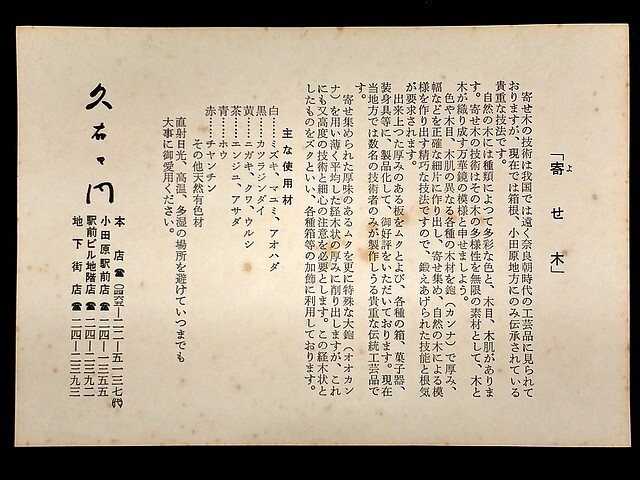 「寄せ木」
よ
寄せ木の技術は我国では遠く奈良朝時代の工芸品に見られて
おりますが、現在では箱根、小田原地方にのみ伝承されている
貴重な技法です。
自然の木には種類によつて多彩な色と、木目、木肌がありま
す。寄せ木の技術はその木の多様性を無限の素材として、木と
木が織り成す万華鏡の模様と申せましよう。
色や木目、木肌の異なる各種の木材を鉋（カンナ）で厚み、
幅などを正確な細片に作り出し、寄せ集め、自然の木による模
様を作り出す精巧な技法ですので、鍛えあげられた技能と根気
が要求されます。
出来上つた厚みのある板をムクとよび、各種の箱、菓子器、
装身具等に、製品化して、御好評をいただいております。現在
当地方では数名の技術者のみが製作しうる貴重な伝統工芸品で
す。
寄せ集められた厚味のあるムクを更に特殊な大鉋（オオカン
ナ）を用い薄く平均した経木状の厚みに削り出しますが、これ
にも又高度の技術と細心の注意を必要とします。この経木状と
したものをズクといい、各種箱等の加飾に利用しております。
主な使用材
白……ミズキ、マユミ、アオハダ
黒……カツラジンダイ
黄……ニガキ、クワ、ウルシ
茶……エンジユ、アサダ
青……ホウ
赤……チヤンチン
その他天然有色材
直射日光、高温、多湿の場所を避けていつまでも
大事に御愛用ください。
久右ヱ門
本店☎（〇四六五）二二―五一三七㈹
小田原駅前店☎二四―一三五五
駅前ビル地階店☎二四―二三九二
地下街店☎二四―二三九三